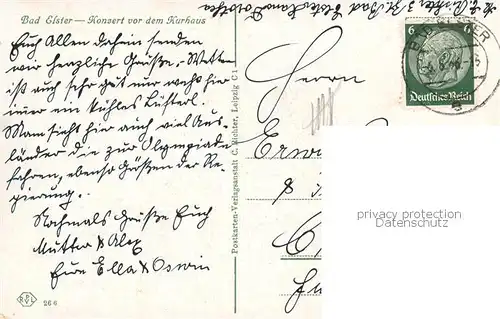 Bad Elster — Konzert vor dem Kurhaus
Euch Allen daheim senden
wir herzliche Grüße. Wetter
ist auch sehr gut nur weht hier
immer ein kühles Lüfterl.
Man sieht hier auch viel Aus-
länder die zur Olympiade
fahren, ebenso Größen der Re-
gierung.
Nochmals Grüße Euch
Mutter & Alex
Eure Ella & Oswin
R&L
266
Postkarten-Verlagsanstalt C. Richter, Leipzig C 1
Bad Elster
6 6
Deutsches Reich
BAD ELSTER
Herrn
privacy protection
Datenschutz